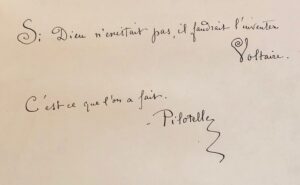 Si Dieu n'existait pas, il faudrait l'inventer
Voltaire.
C'est ce que l'on a fait.
- Pilotelle